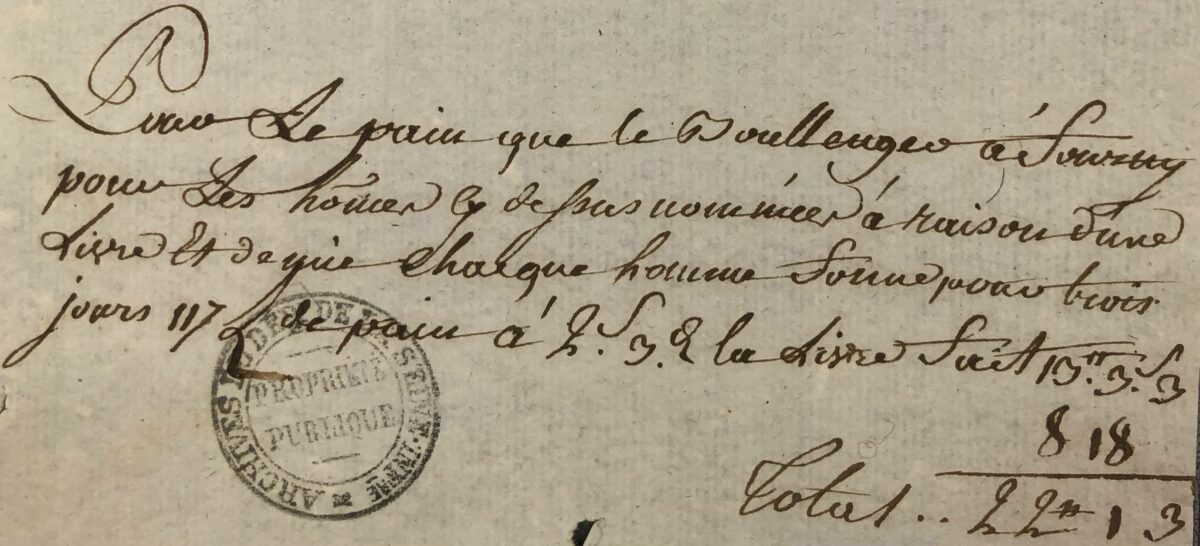 Pour Le pain que le Boullenger à fourny
pour Les hom̃es cy dessus nommées à raison d'une
Livre Et demie Chaque homme Donne pour trois
jours 117 L de pain à 2.s 3.d la Livre fait 13.tt 3.s 3
8 18
Total .. 22tt 1 3
ARCHIVES DU DEPT DE LA SEINE-INFRE
PROPRIÉTÉ
PUBLIQUE